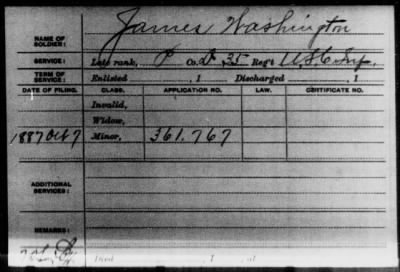 James Washington
NAME OF SOLDIER:
SERVICE: Late rank, P Co. D, 35 Reg't U.S.C. Inf.
TERM OF SERVICE: Enlisted , 1 Discharged , 1
DATE OF FILING. CLASS. APPLICATION NO. LAW. CERTIFICATE NO.
Invalid,
Widow,
1887 Oct 7 Minor, 361.767
ADDITIONAL SERVICES:
REMARKS:
Died , 1 , at